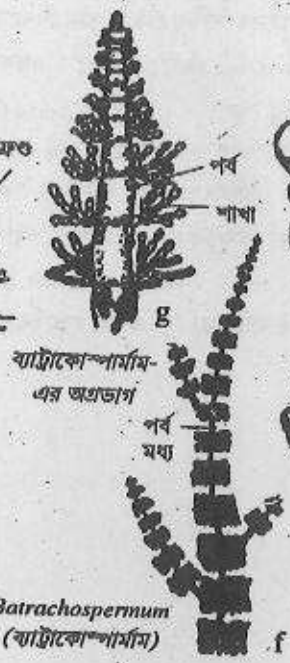 পর্ব
শাখা
g
ব্যাট্রাকোস্পার্মাম-
এর অগ্রভাগ
পর্ব
মধ্য
Batrachospermum
(ব্যাট্রাকোস্পার্মাম)
f